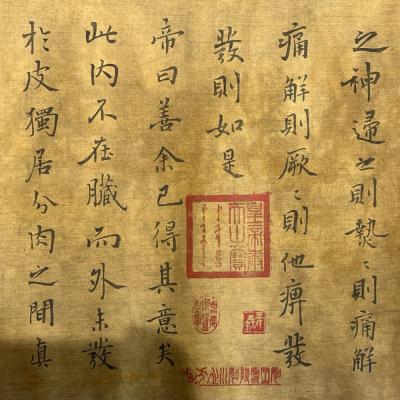 之神歸之則熱〻則痛解
痛解則厥〻則他痹發
發則如是
帝曰善余已得其意矣
此內不在臟而外未發
於皮獨居分肉之間真
皇帝奉
天之寶